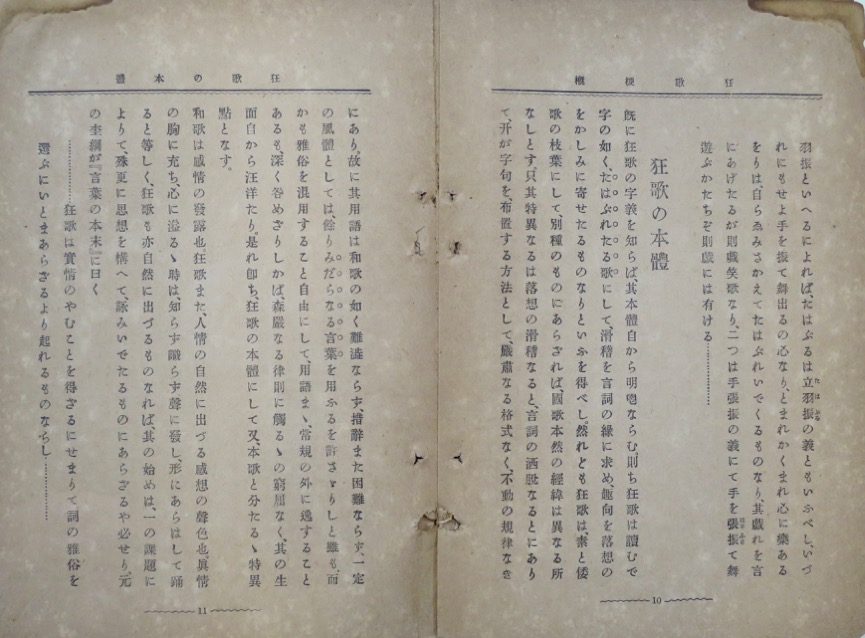 狂歌梗概
羽振といへるによれば、たはぶるは立羽振の義ともいふべし、いづ
れにもせよ手を振て舞出るの心なり、とまれかくまれ心に樂ある
をりは、自らゑみさかえてたはぶれいでくるものなり、其戯れを言
にあげたるが則戯笑歌なり、二つは手張振の義にて手を張振て舞
遊ぶかたちぞ則戯には有ける…………
狂歌の本體
既に狂歌の字義を知らば、其本體自から明晰ならむ、則ち狂歌は讀むで
字の如く、たはぶれたる歌にして、滑稽を言詞の緣に求め、趣向を落想の
をかしみに寄せたるものなりといふを得べし。然れども狂歌は、素と倭
歌の枝葉にして、別種のものにあらざれば、國歌本然の經緯は異なる所
なしとす、只其特異なるは落想の滑稽なると、言詞の洒脱なるとにあり
て、幵が字句を、布置する方法として、嚴肅なる格式なく、不動の規律なき
10
狂歌の本體
にあり。故に其用語は和歌の如く難澁ならず、措辭また困難ならず、一定
の風體としては、餘りみだらなる言葉を用ふるを許さゞりしと雖も、而
かも雅俗を混用すること自由にして、用語まゝ常規の外に逸すること
あるも、深く咎めざりしかば、森嚴なる律則に觸るゝの窮屈なく、其の生
面自から汪洋たり。是れ卽ち、狂歌の本體にして又、本歌と分たるゝ特異
點となす。
和歌は感情の發露也。狂歌また、人情の自然に出づる感想の聲色也、眞情
の胸に充ち、心に溢るゝ時は、知らず識らず聲に發し、形にあらはして踊
ると等しく、狂歌も亦自然に出づるものなれば、其の始めは、一の課題に
よりて、殊更に思想を構へて、詠みいでたるものにあらざるや必せり、元
の杢網が『言葉の本末』に曰く
…………狂歌は實情のやむことを得ざるにせまりて詞の雅俗を
選ぶにいとまあらざるより起れるものならし…………
11